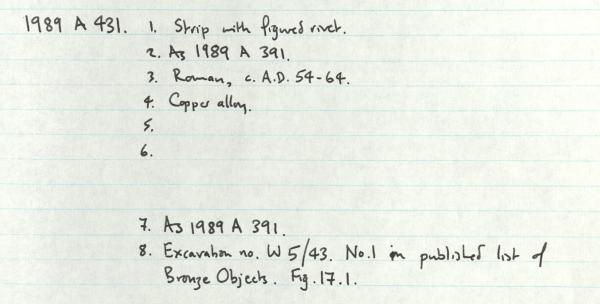 1989 A 431. 1. Strip with figured rivet.
2. As 1989 A 391.
3. Roman, c. A.D. 54-64.
4. Copper alloy.
5.
6.
7. As 1989 A 391.
8. Excavation no. W 5/43. No.1 in published list of
Bronze Objects. Fig.17.1.